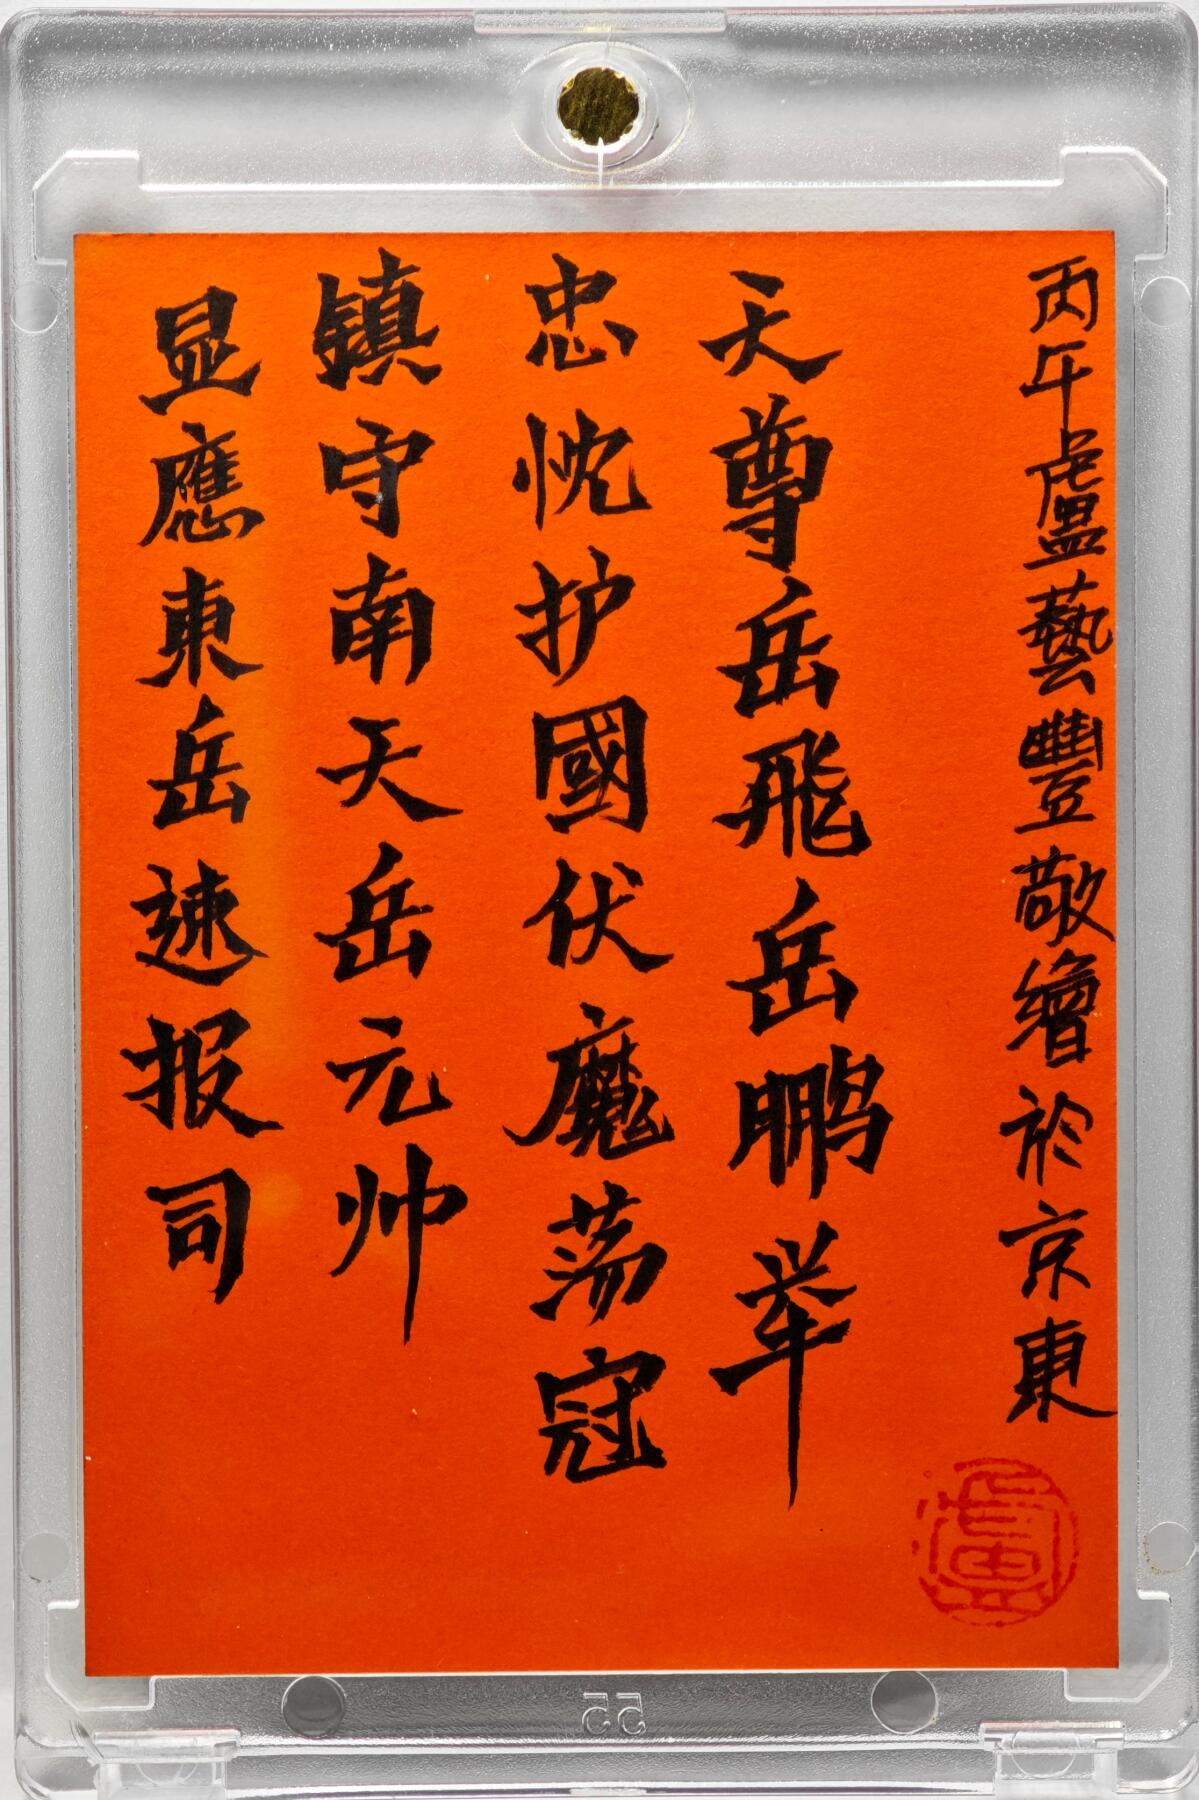 丙午盧藝豐敬繪於京東
天尊岳飛岳鹏举
忠忱护國伏魔荡冠
鎮守南天岳元帅
显應東岳速报司
55